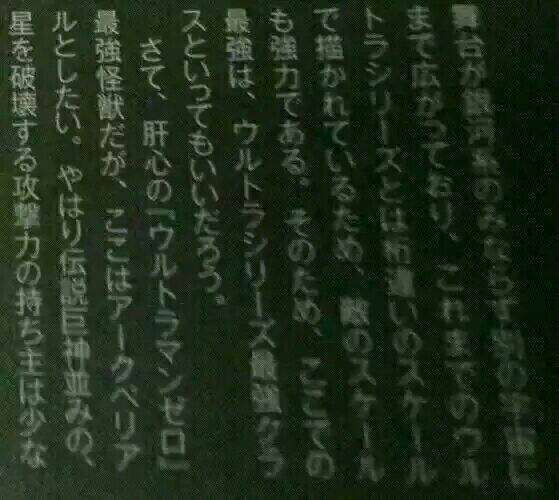 舞台が銀河系のみならず別の宇宙に
まで広がっており、これまでのウル
トラシリーズとは桁違いのスケール
で描かれているため、敵のスケール
も強力である。そのため、ここでの
最強は、ウルトラシリーズ最強クラ
スといってもいいだろう。
さて、肝心の「ウルトラマンゼロ」
最強怪獣だが、ここはアークベリア
ルとしたい。やはり伝説巨神並みの、
星を破壊する攻撃力の持ち主は少な